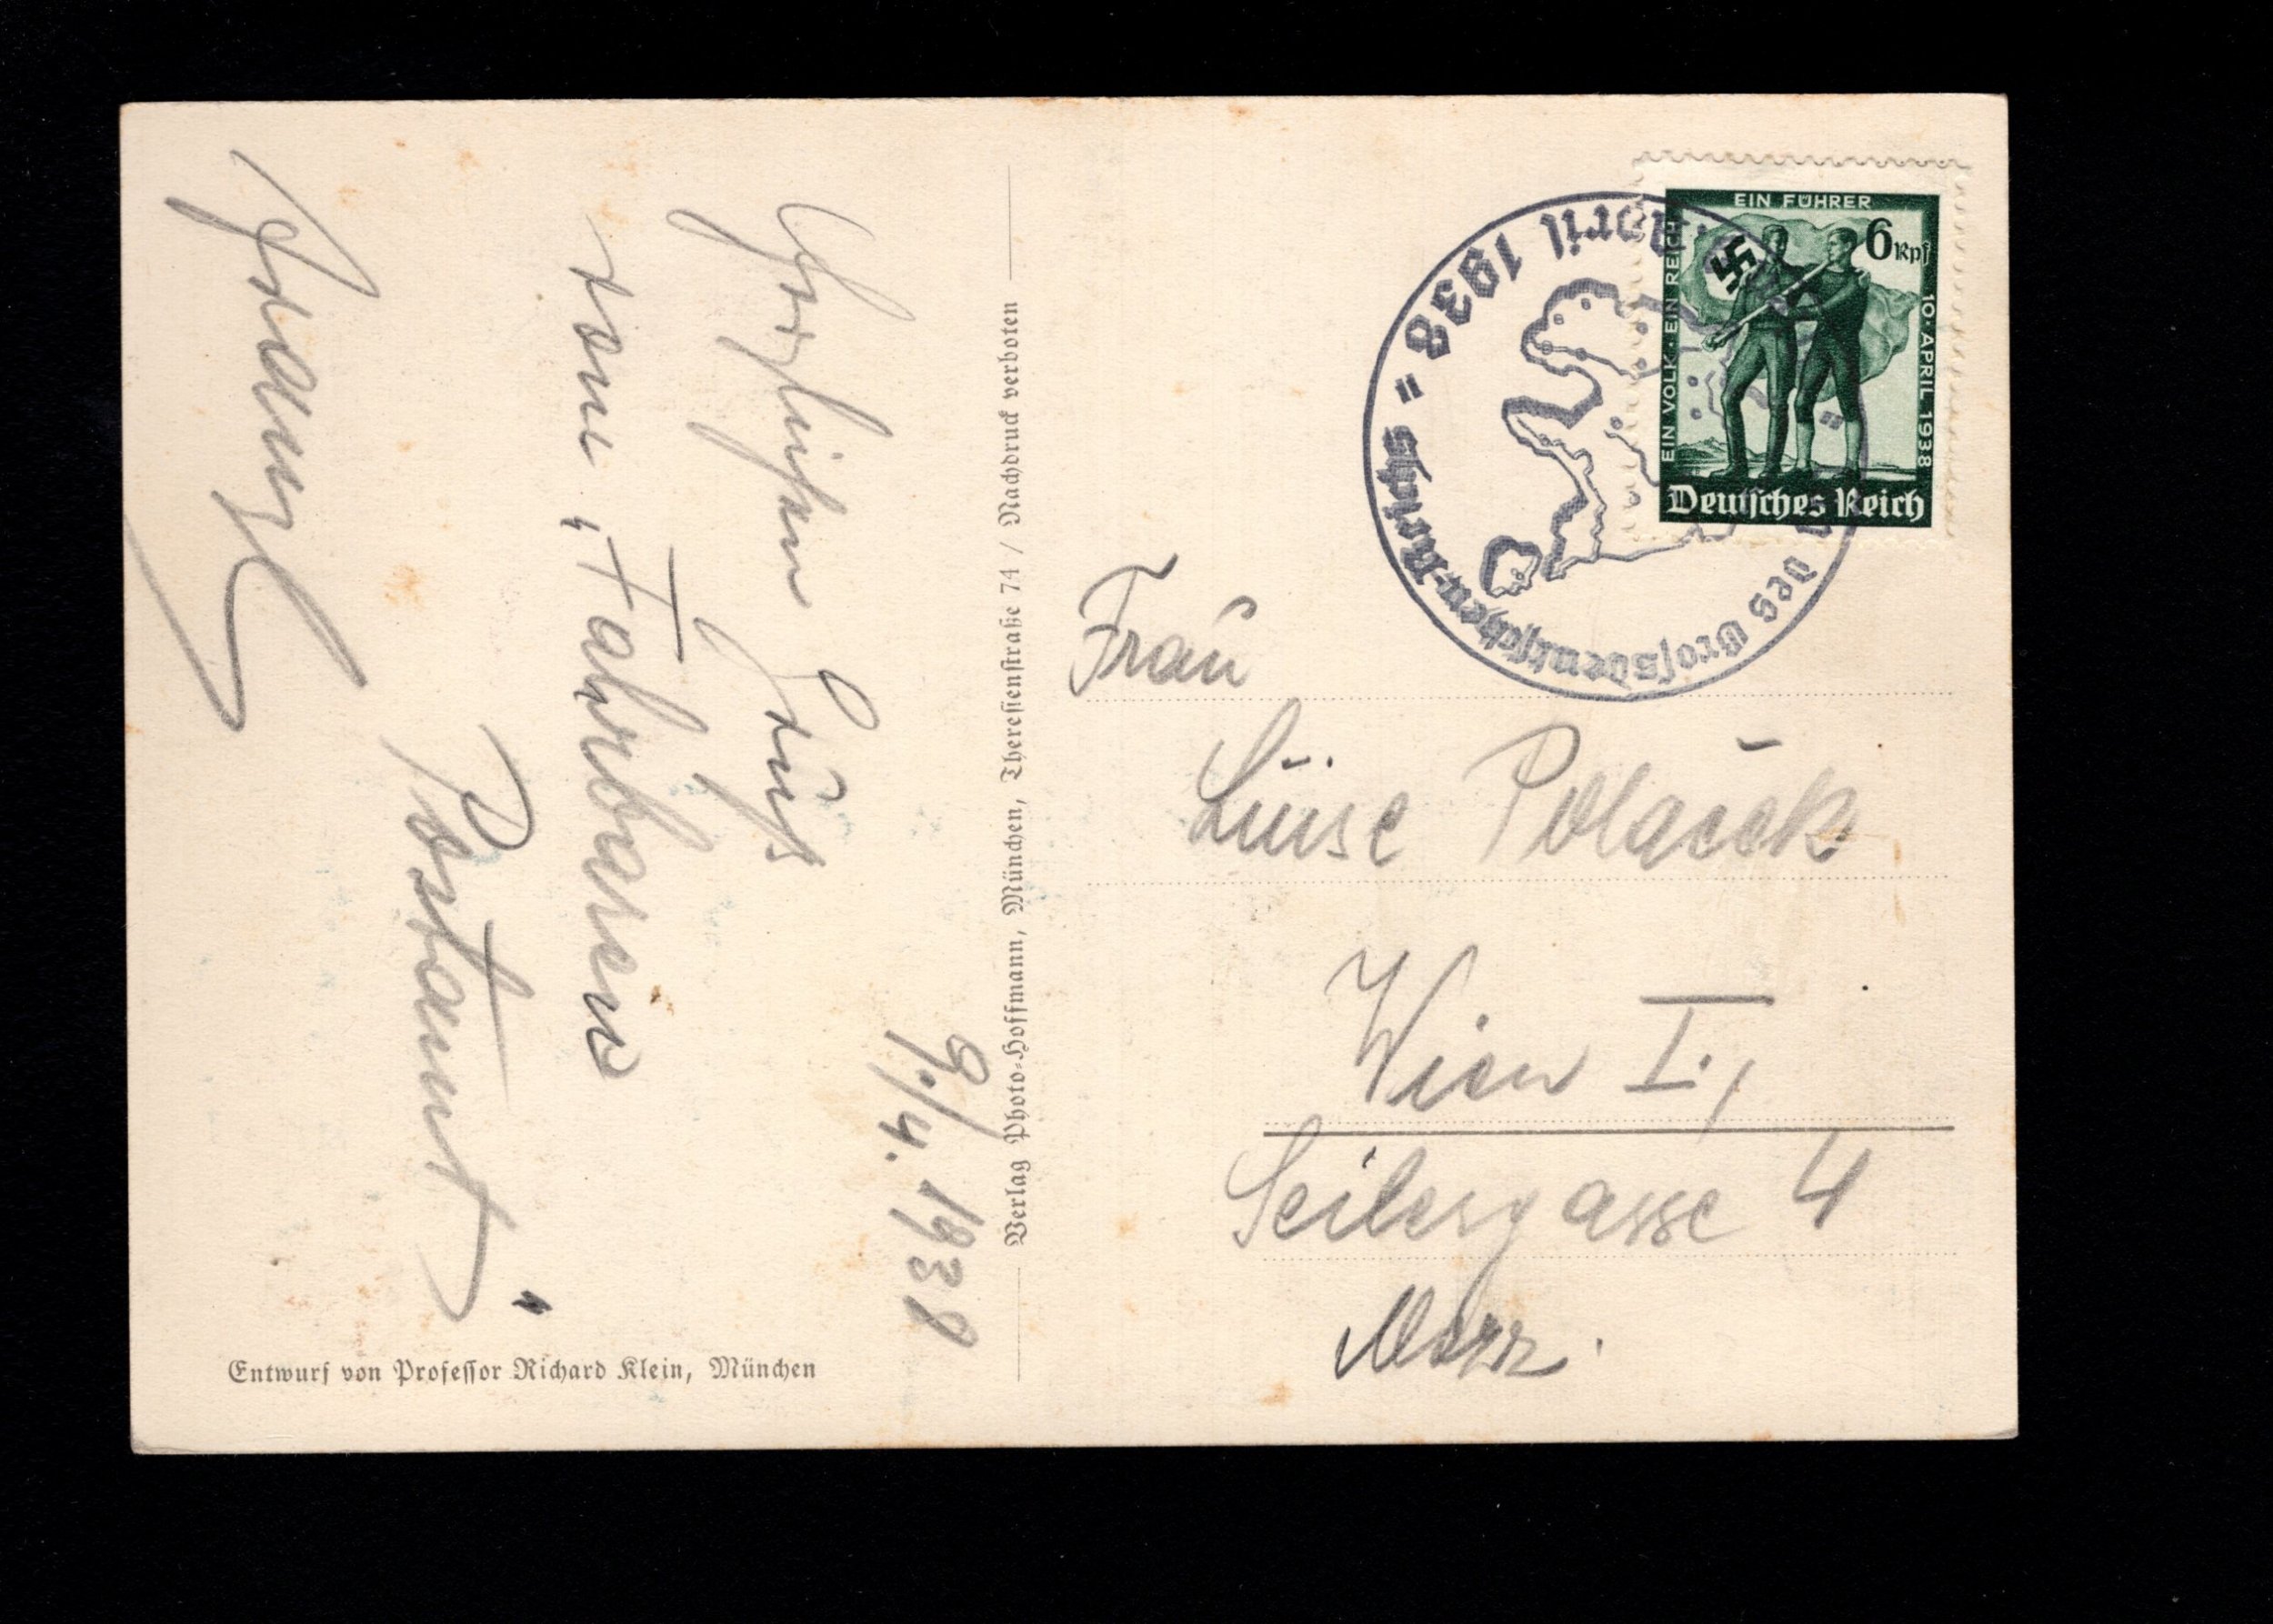 9./4. 1938
Herzlichen Gruß
vom „Fahrbaren
Postamt"
Verlag Photo-Hoffmann, München, Theresienstraße 74 / Nachdruck verboten
Entwurf von Professor Richard Klein, München
April 1938
des Großdeutschen-Reichs
EIN FÜHRER
EIN VOLK · EIN REICH
6 Rpf
10 · APRIL 1938
Deutsches Reich
Frau
Luise Polaček
Wien I.,
Seilergasse 4